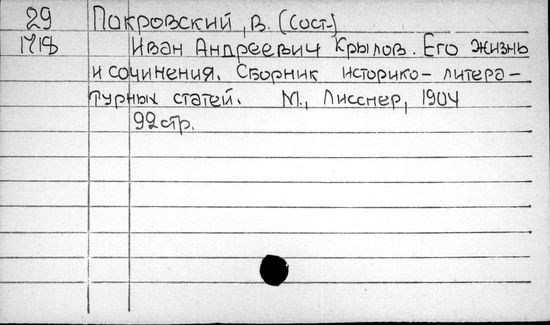 29 Покровский, В. (Сост.)
1718 Иван Андреевич Крылов. Его жизнь
и сочинения. Сборник историко-литера-
турных статей. М., Лисснер, 1904
92 стр.